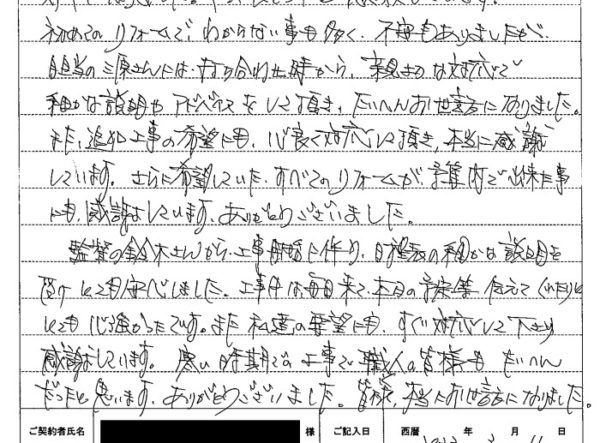 初めてのリフォームで、わからない事も多く、不安もありましたが、
担当の三原さんには、打ち合わせ時から、親身な対応で
細かな説明やアドバイスをして頂き、たいへんお世話になりました。
また、追加工事の希望にも、心良く対応して頂き、本当に感謝
しています。さらに希望していた、すべてのリフォームが予算内で出来た事
にも、感謝しています。ありがとうございました。
監督の鈴木さんから、工事開始に伴い、日程表の細かな説明を
受け とても安心しました。工事中は、毎日来て、本日の予定等 伝えてくれたりと
とても心強かったです。また 私達の要望にも、すぐ対応して下さり
感謝しています。寒い時期での工事で、職人の皆様も たいへん
だったと思います。ありがとうございました。皆様、本当にお世話になりました。
ご契約者氏名 様 ご記入日 西暦 年 月 日